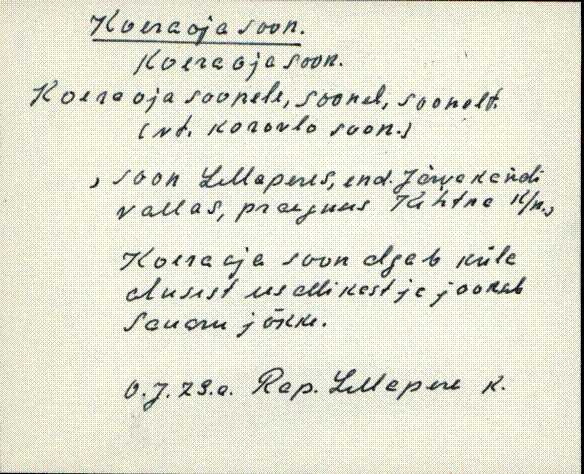 Koeraoja soon.
Koeraoja soon.
Koeraoja soonele, soonel, soonelt.
(vt. korovlo soon.)
, soon Lellaperes, end. Järvakandi
vallas, praeguses Kehtna k/n.,
Koeraoja soon algab küla
alusest allikast ja jookseb
jõkke.
O. J. 29.a. Rap. Lellapere k.